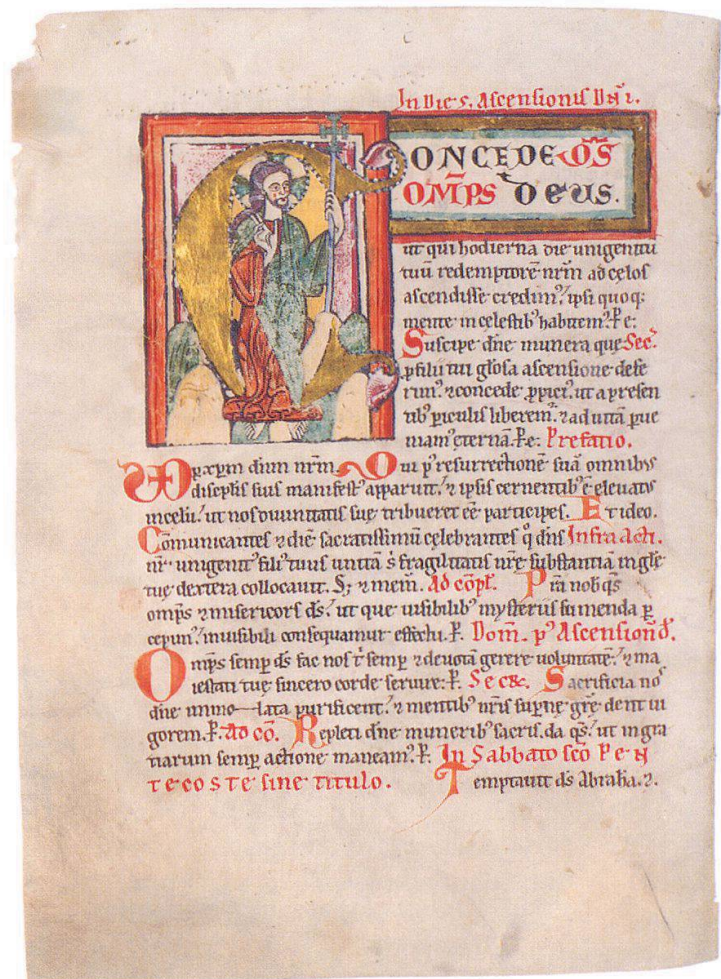 In die S. Ascensionis Dn̄i.
CONCEDE QS̄
OM̄PS DEUS.
ut qui hodierna die unigenitū
tuū redemptorē nr̄m ad celos
ascendisse credimꝰ ipsi quoq;
mente in celestibꝰ habitemꝰ. P̄ e:
Suscipe dn̄e munera que Sec̄.
ꝓ filii tui gl̄osa ascensione defe
rimꝰ. ⁊ concede ꝓpiciꝰ. ut a presen
tibꝰ ꝑiculis liberemꝰ. ⁊ ad uitā ꝑue
niamꝰ eternā. P̄. e: Prefatio.
ꝑ xp̄m dn̄m nr̄m Qui pꝰ resurrectionē suā omnibꝰ
discipl̄is suis manifestꝰ apparuit. ⁊ ipsis cernentibꝰ ē eleuatꝰ
in celū. ut nos diuinitatis sue tribueret eē participes. Et ideo.
Cōmunicantes ⁊ diē sacratissimū celebrantes q̊ dn̄s Infra acti.
nr̄ unigenitꝰ filiꝰ tuus unitā s̄ fragilitatis nr̄e substantiā in gl̄e
tue dextera collocauit. S; ⁊ mem̄. Ad cōpl̄. P̄ta nob̄ qs̄
om̄ps ⁊ misericors ds̄. ut que uisibilibꝰ mysteriis sumenda ꝑ
cepimꝰ. inuisibili consequamur effectu. P̄. Dom̄. pꝰ Ascensionē.
Om̄ps semꝑ ds̄ fac nos t̄ semꝑ ⁊ deuotā gerere uoluntatē. ⁊ ma
iestati tue sincero corde seruire. P̄. Sec̄. Sacrificia nos
dn̄e immolata purificent. ⁊ mentibꝰ nr̄is suꝑne gr̄e dent ui
gorem. P̄. Ad cō. Repleti dn̄e muneribꝰ sacris. da qs̄. ut in gra
tiarum semꝑ actione maneamꝰ. P̄. In Sabbato sc̄o Pen
tecoste sine titulo. Temptauit ds̄ Abrahā. ⁊.